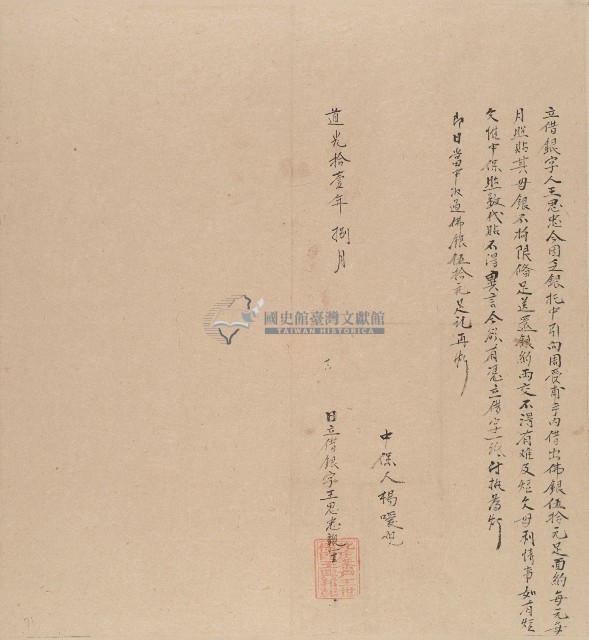 立借銀字人王思忠今因乏銀托中引向周受甫手內借出佛銀伍拾元足面約每元每
月照貼其母銀不拘限備足送還銀約兩交不得有难及短欠母利情事如有短
欠惟中保照數代貼不得異言今欲有憑立借字一紙付执為炤
即日當中收過佛銀伍拾元足訖再炤
道光拾壹年捌月
日立借銀字王思忠親筆
中保人楊
國史館臺灣文獻館
TAIWAN HISTORICA